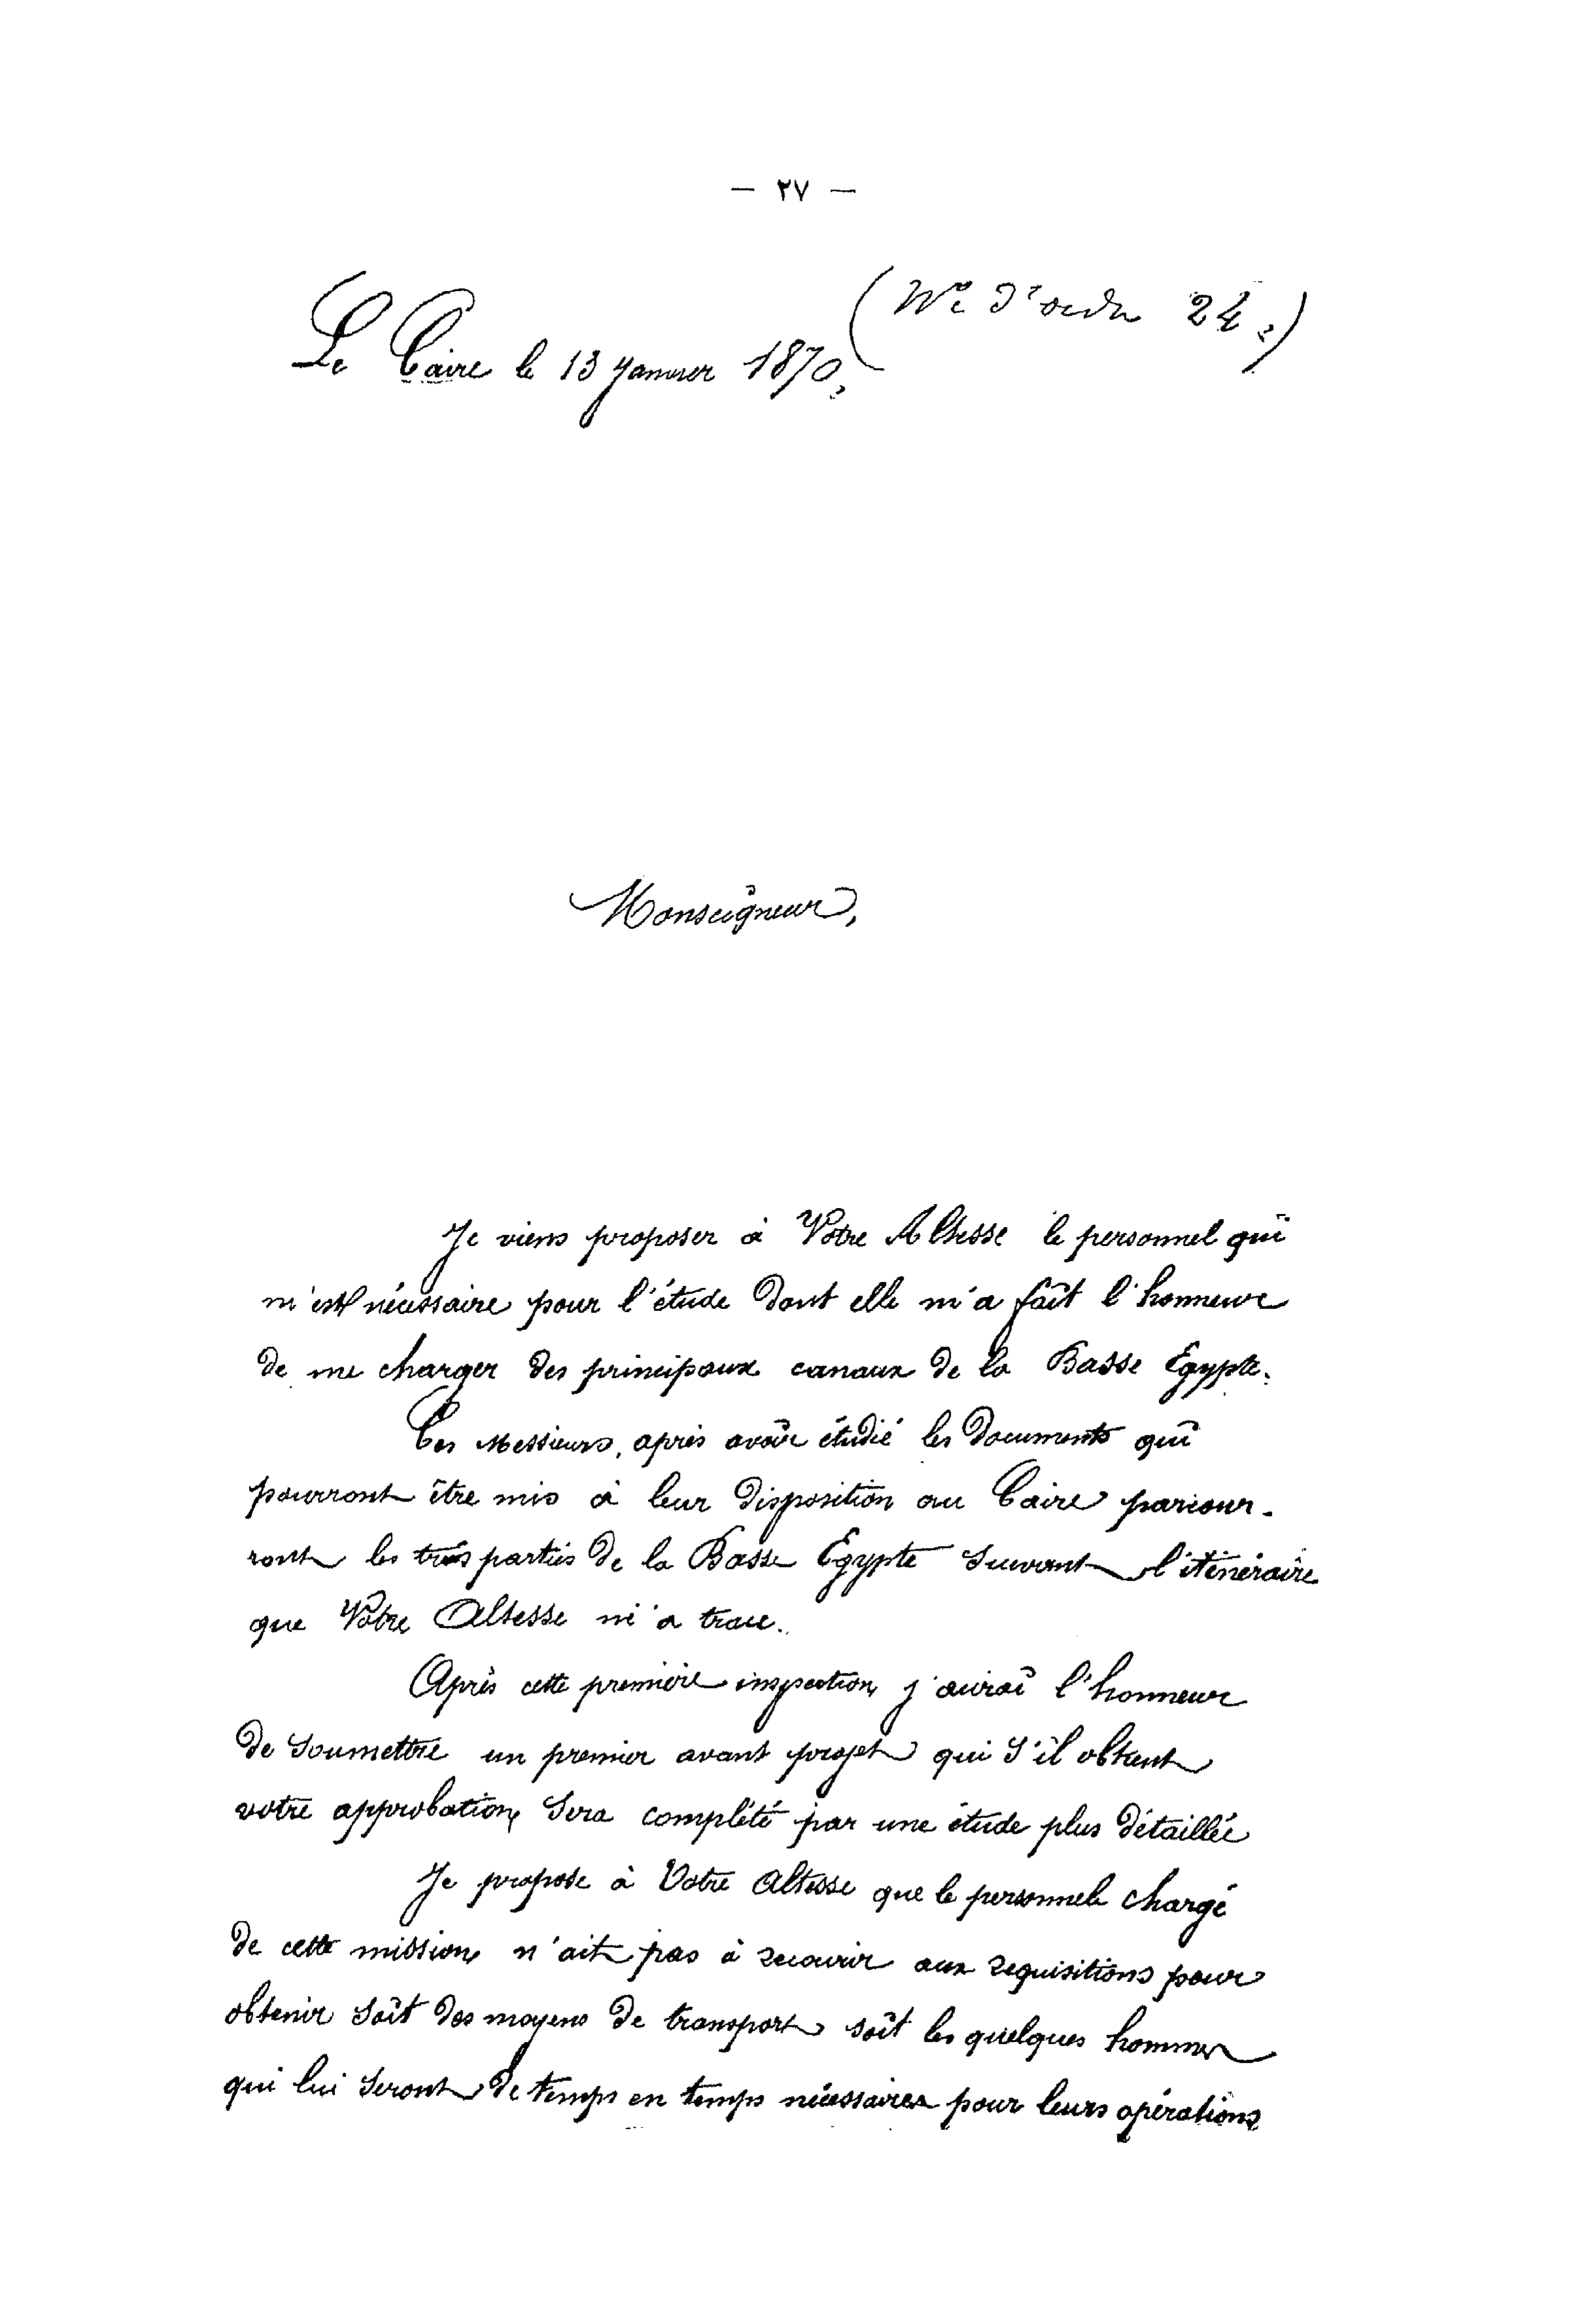 — ٢٧ —
(N° d'ordre 24.)
Le Caire le 13 Janvier 1870.
Monseigneur,
Je viens proposer à Votre Altesse le personnel qui
m'est nécessaire pour l'étude dont elle m'a fait l'honneur
de me charger des principaux canaux de la Basse Egypte.
Ces Messieurs, après avoir étudié les documents qui
pourront être mis à leur disposition au Caire parcour-
ront les trois parties de la Basse Egypte suivant l'itinéraire
que Votre Altesse m'a tracé.
Après cette première inspection j'aurai l'honneur
de soumettre un premier avant projet qui s'il obtient
votre approbation sera complété par une étude plus détaillée
Je propose à Votre Altesse que le personnel chargé
de cette mission n'ait pas à recourir aux requisitions pour
obtenir soit des moyens de transport soit les quelques hommes
qui lui seront de temps en temps nécessaires pour leurs opérations